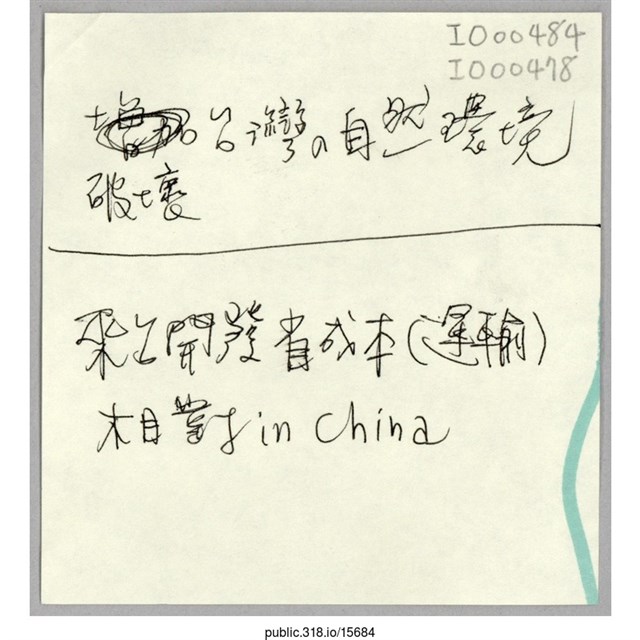 IO00484
IO00478
台灣の自然環境
破壞
來台開發省成本(運輸)
相對 in China
public.318.io/15684